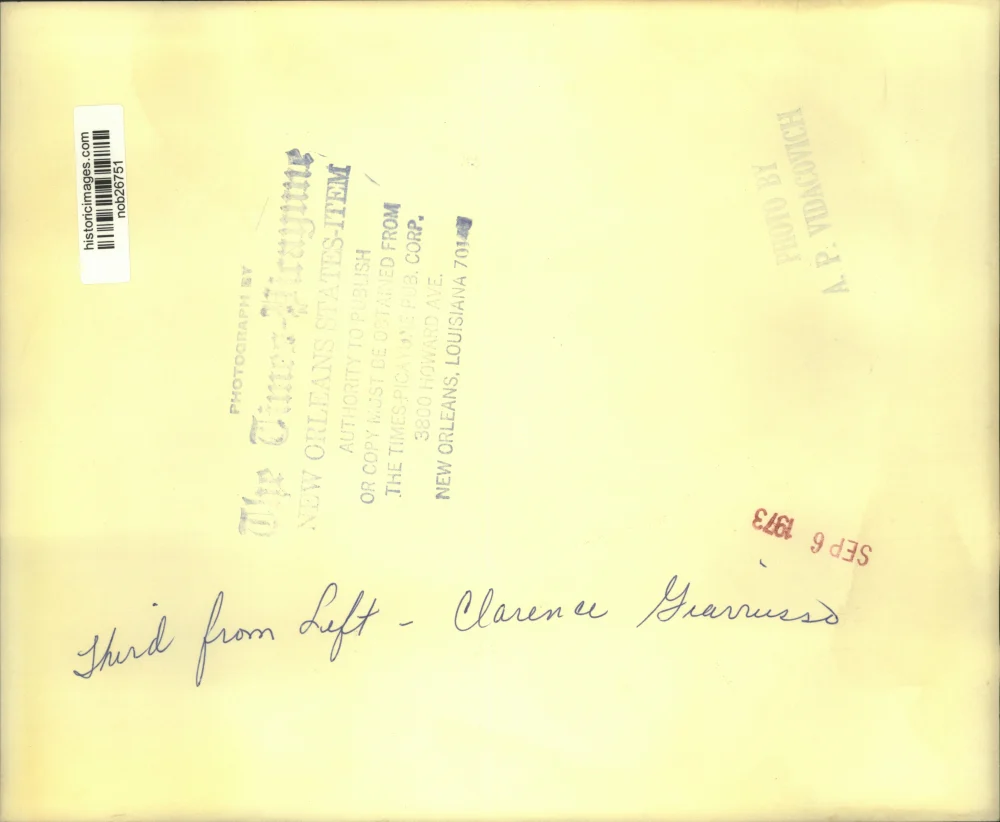 historicimages.com
nob26751
PHOTOGRAPH BY
The Times-Picayune
NEW ORLEANS STATES-ITEM
AUTHORITY TO PUBLISH
OR COPY MUST BE OBTAINED FROM
THE TIMES-PICAYUNE PUB. CORP.
3800 HOWARD AVE.
NEW ORLEANS, LOUISIANA
PHOTO BY
A. P. VIDACOVICH
SEP 6 1973
Third from Left - Clarence Giarrusso